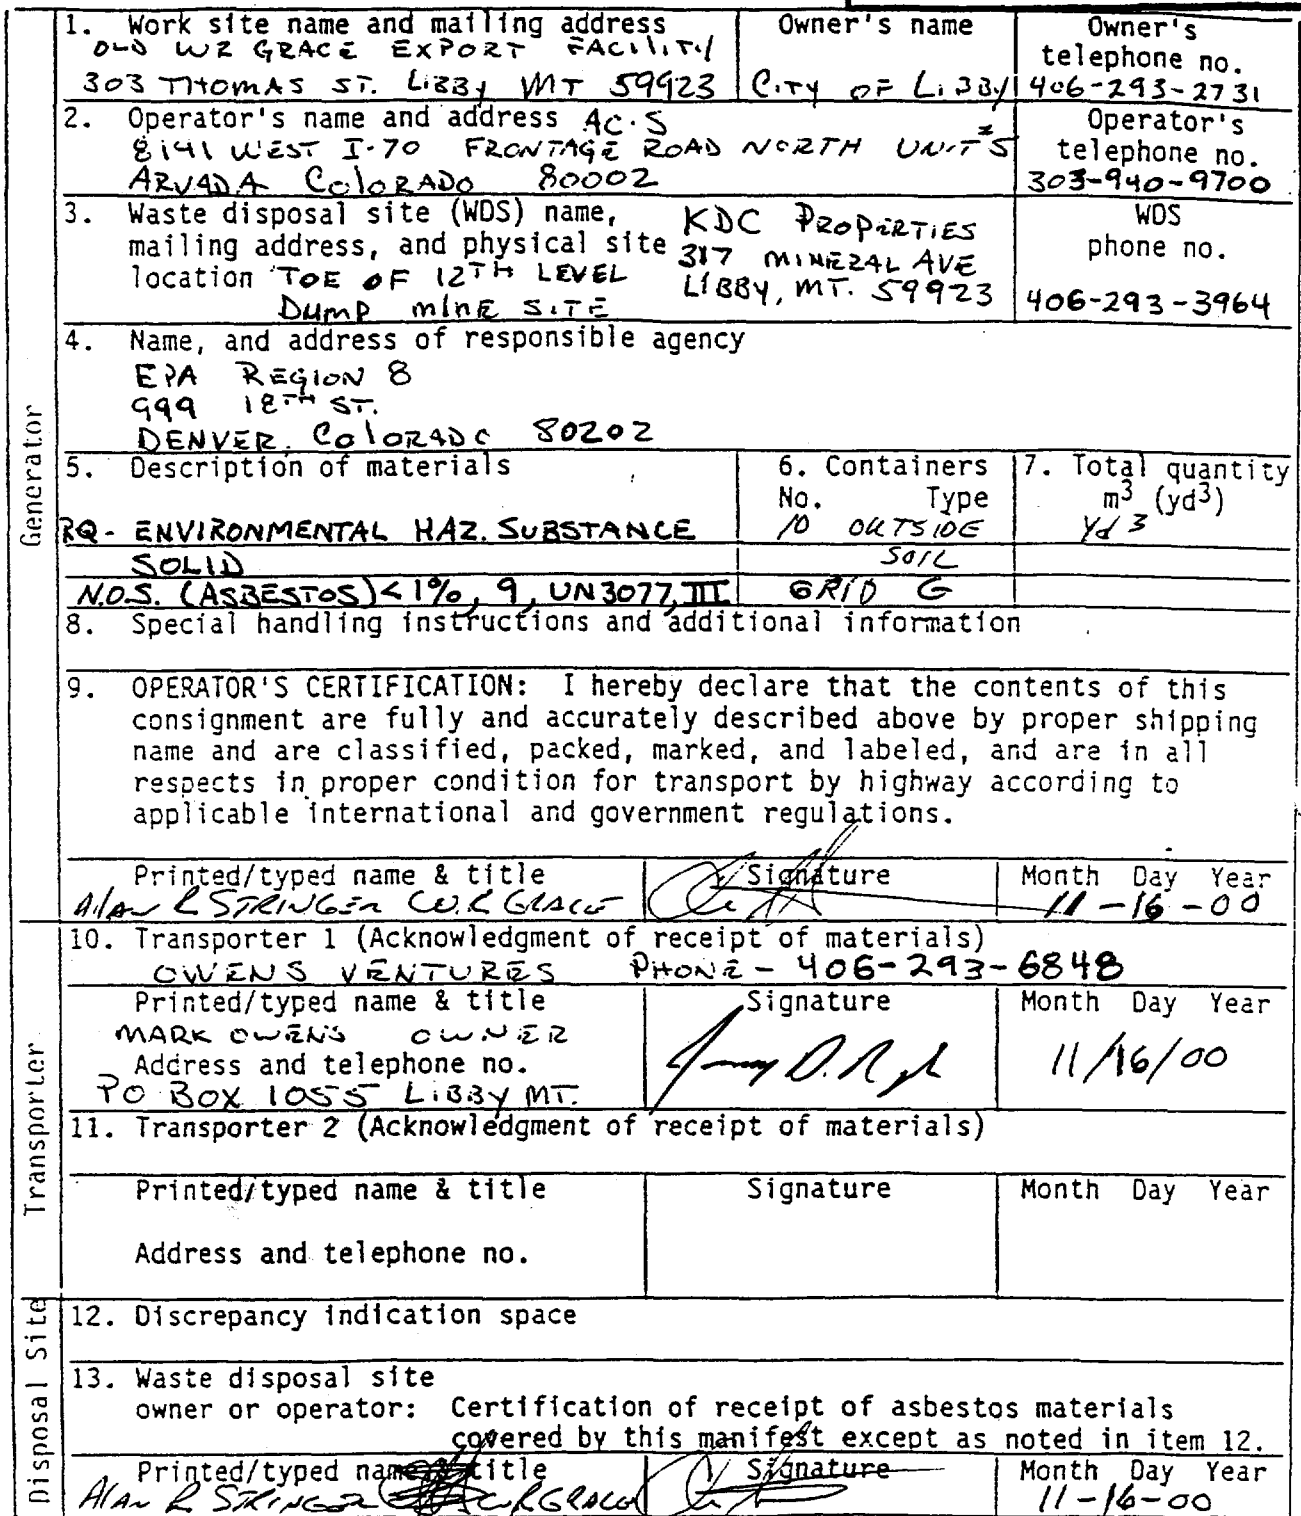 1. Work site name and mailing address
OLD WR GRACE EXPORT FACILITY
303 THOMAS ST. LIBBY MT 59923
Owner's name
CITY OF LIBBY
Owner's
telephone no.
406-293-2731
2. Operator's name and address AC.S
8141 WEST I-70 FRONTAGE ROAD NORTH UNIT #5
ARVADA COLORADO 80002
Operator's
telephone no.
303-940-9700
3. Waste disposal site (WDS) name,
mailing address, and physical site
location TOE OF 12TH LEVEL
DUMP MINE SITE
KDC PROPERTIES
317 MINERAL AVE
LIBBY, MT. 59923
WDS
phone no.
406-293-3964
Generator
4. Name, and address of responsible agency
EPA REGION 8
999 18TH ST.
DENVER, COLORADO 80202
5. Description of materials
6. Containers
No. Type
7. Total quantity
m3 (yd3)
RQ- ENVIRONMENTAL HAZ. SUBSTANCE
10 OUTSIDE
Yd 3
SOLID
SOIL
N.O.S. (ASBESTOS) < 1%, 9, UN3077, III
GRID G
8. Special handling instructions and additional information
9. OPERATOR'S CERTIFICATION: I hereby declare that the contents of this
consignment are fully and accurately described above by proper shipping
name and are classified, packed, marked, and labeled, and are in all
respects in proper condition for transport by highway according to
applicable international and government regulations.
Printed/typed name & title
Alan R STRINGER W.R GRACE
Signature
Month Day Year
11-16-00
Transporter
10. Transporter 1 (Acknowledgment of receipt of materials)
OWENS VENTURES PHONE - 406-293-6848
Printed/typed name & title
MARK OWENS OWNER
Address and telephone no.
PO BOX 1055 LIBBY MT.
Signature
Month Day Year
11/16/00
11. Transporter 2 (Acknowledgment of receipt of materials)
Printed/typed name & title
Signature
Month Day Year
Address and telephone no.
Disposal Site
12. Discrepancy indication space
13. Waste disposal site
owner or operator: Certification of receipt of asbestos materials
covered by this manifest except as noted in item 12.
Printed/typed name & title
Alan R STRINGER W R GRACE
Signature
Month Day Year
11-16-00